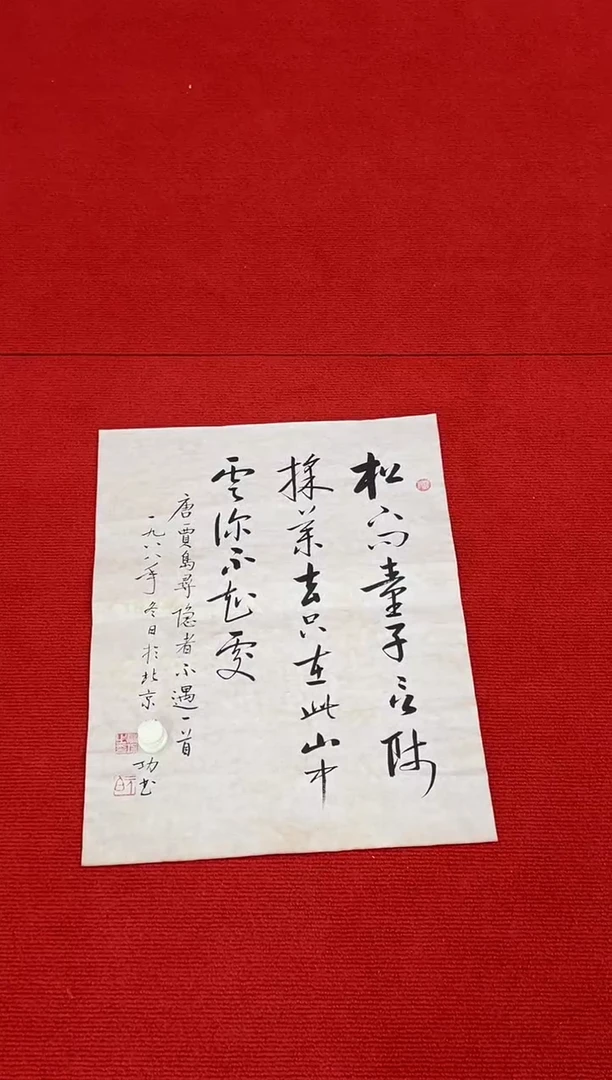 松下问童子言师
採薬去只在此山中
雲深不知處
唐賈島尋隐者不遇一首
一九八八年冬日於北京
功书